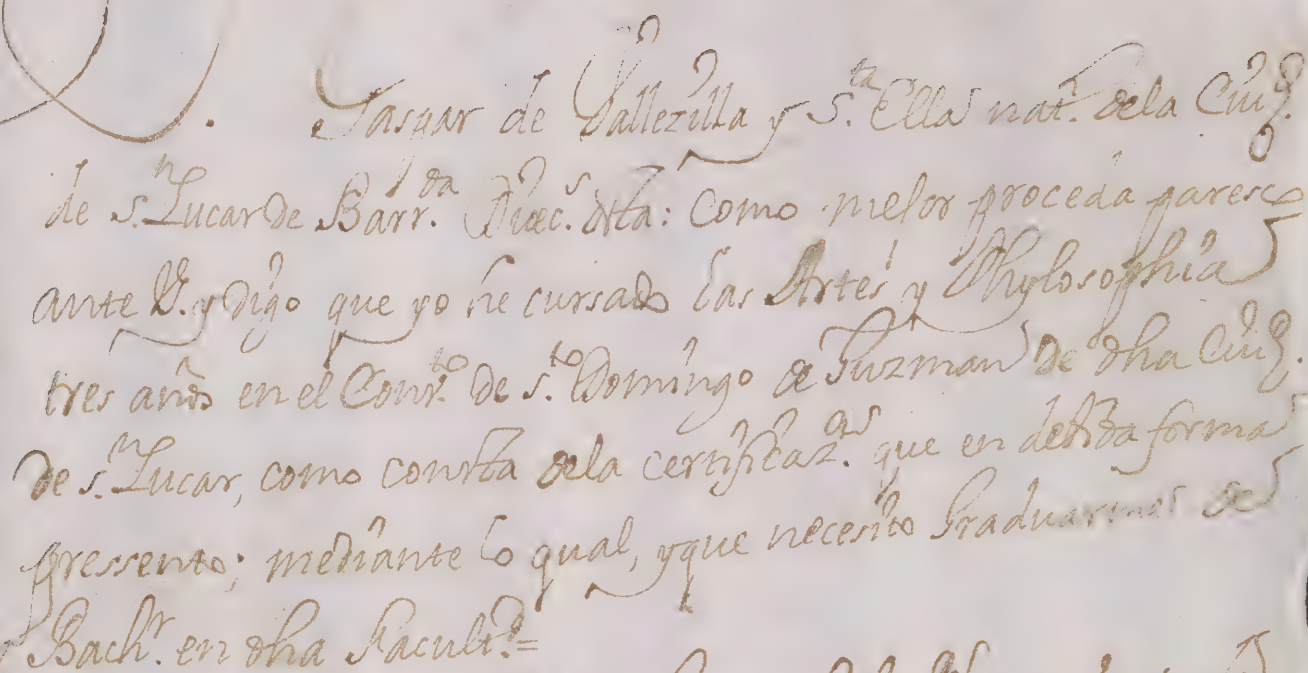 Gaspar de Vallezilla y S.ta Ella nat.l dela Ciu.d
de S.n Lucar de Barr.da Dioec.s desta: como mejor proceda paresco
ante V. y digo que yo he cursado las Artes y Phylosophia
tres años en el Conv.to de S.to Domingo de Guzman de dha Ciu.d
de S.n Lucar, como consta dela certificaz.on que en debida forma
pressento; mediante lo qual, y que necesito Graduarme de
Bach.r en dha Facult.d =